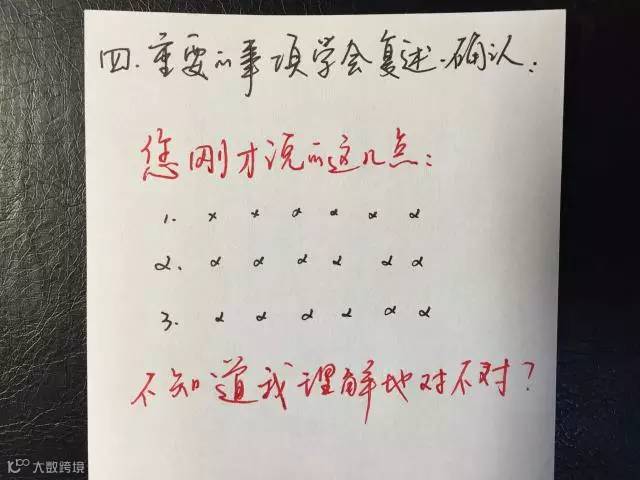 四.重要的事项学会复述.确认:
您刚才说的这几点:
1. x x x x x x
2. x x x x x x
3. x x x x x x
不知道我理解地对不对?
大数跨境